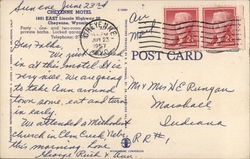 Sun eve June 23rd
CHEYENNE MOTEL
1601 EAST Lincoln Highway
Cheyenne, Wyoming
private baths. Locked garage
Telephone
Dear Folks,
We just parked
in at this motel. It is
very nice. We are going
to take Ann around
town some, eat and turn
in early.
We attended a Methodist
church in Elm Creek Nebr
this morning. Love
George Ruth & Ann.
CHEYENNE
JUN 23
1957
Air
Mail
2¢
2¢
POST CARD
Mr & Mrs H E Runyan
Marshall
Indiana
RR #1